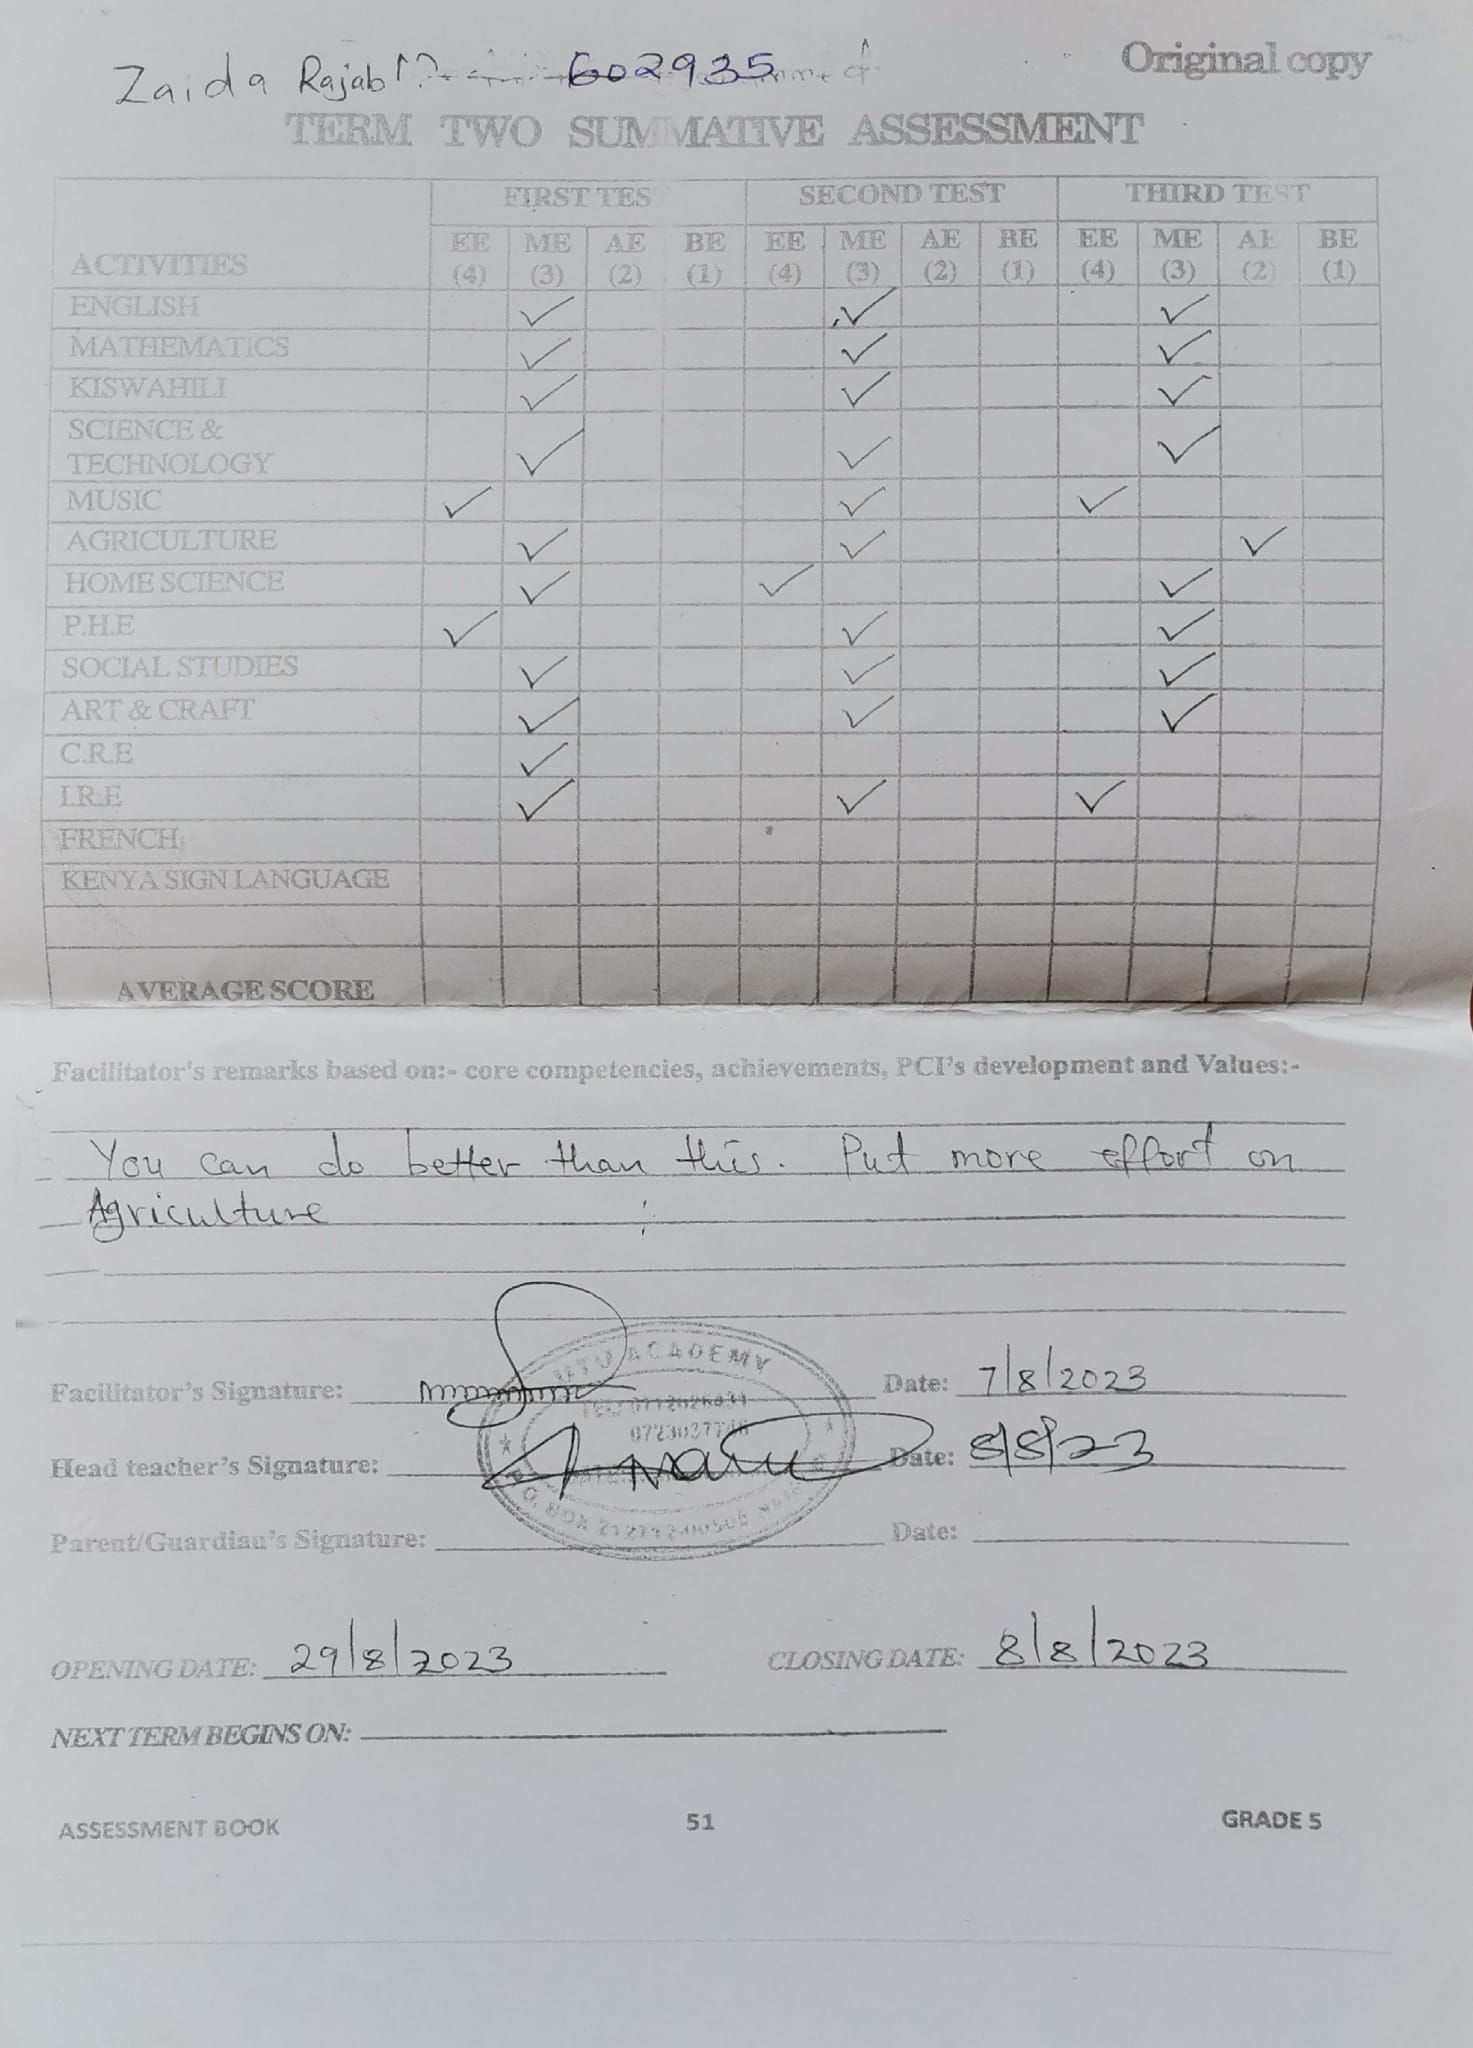 Original copy
Zaida Rajab 602935
TERM TWO SUMMATIVE ASSESSMENT
FIRST TES SECOND TEST THIRD TEST
ACTIVITIES EE (4) ME (3) AE (2) BE (1) EE (4) ME (3) AE (2) BE (1) EE (4) ME (3) AE (2) BE (1)
ENGLISH ✓ ✓ ✓
MATHEMATICS ✓ ✓ ✓
KISWAHILI ✓ ✓ ✓
SCIENCE &
TECHNOLOGY ✓ ✓ ✓
MUSIC ✓ ✓ ✓
AGRICULTURE ✓ ✓ ✓
HOME SCIENCE ✓ ✓ ✓
P.H.E ✓ ✓ ✓
SOCIAL STUDIES ✓ ✓ ✓
ART & CRAFT ✓ ✓ ✓
C.R.E ✓
I.R.E ✓ ✓ ✓
FRENCH
KENYA SIGN LANGUAGE
AVERAGE SCORE
Facilitator's remarks based on:- core competencies, achievements, PCI's development and Values:-
You can do better than this. Put more effort on
Agriculture
ACADEMY
Facilitator's Signature: Date: 7/8/2023
Head teacher's Signature: Date: 8/8/23
P.O. BOX
Parent/Guardian's Signature: Date:
OPENING DATE: 29/8/2023 CLOSING DATE: 8/8/2023
NEXT TERM BEGINS ON:
ASSESSMENT BOOK 51 GRADE 5